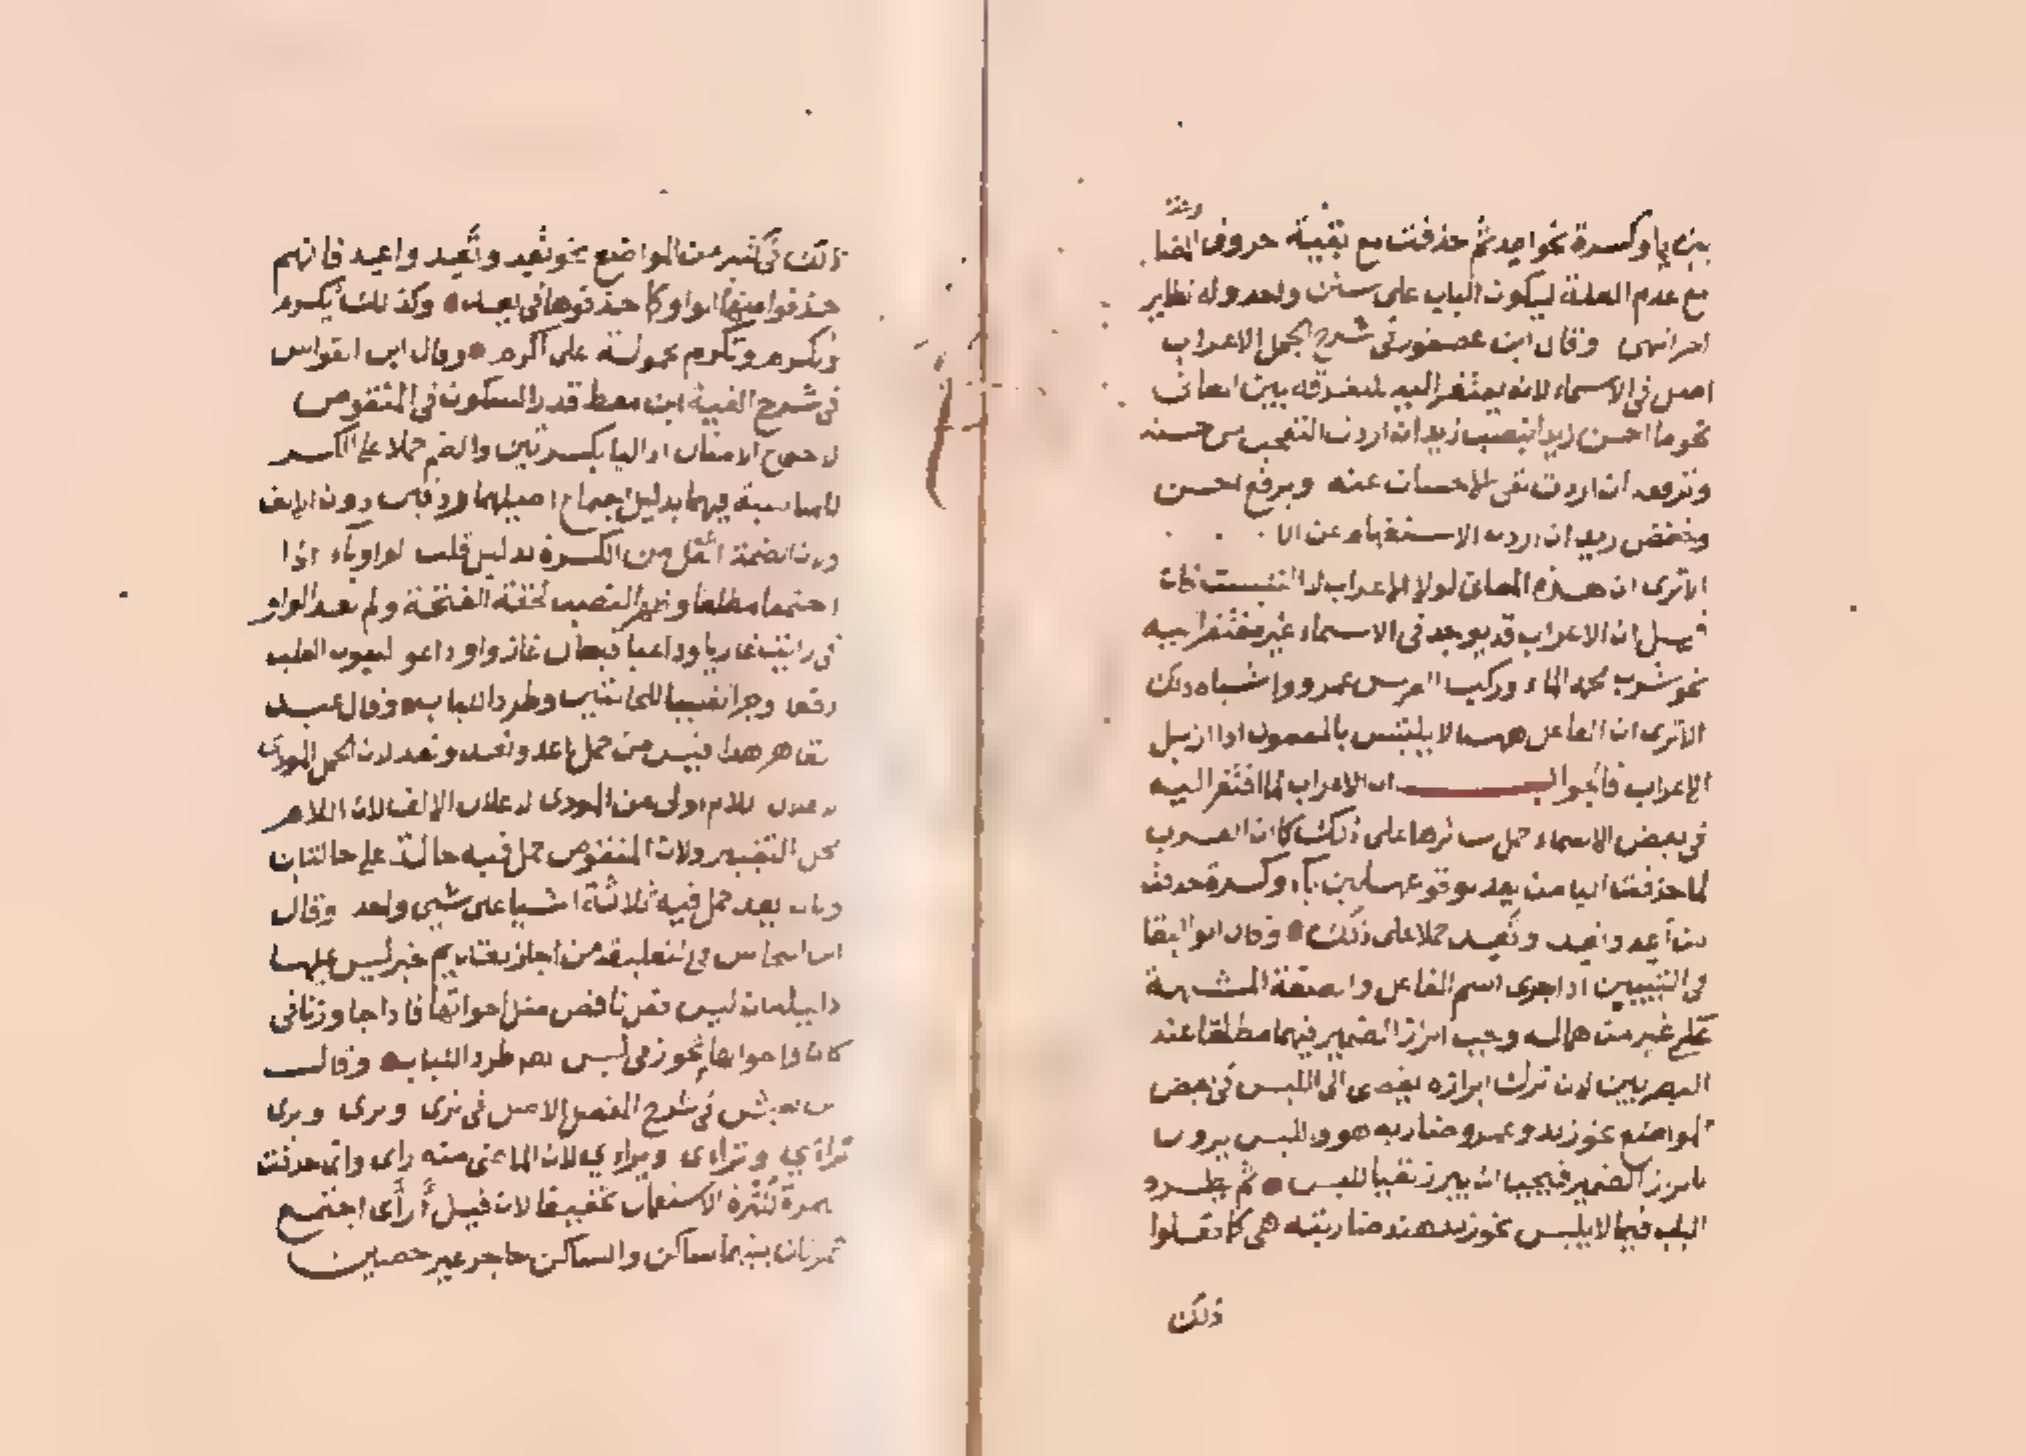 بين ياء وكسرة نحو يعد ثم حذفت مع بقية حروف المضا
مع عدم العلة ليكون الباب على سنن واحد وله نظاير
اخر انتهى وقال ابن عصفور في شرح الجمل الاعراب
اصل في الاسماء لانه يفتقر اليه للتفرقة بين المعاني
نحو ما احسن زيدا بنصب زيد ان اردت التعجب من حسنه
وترفعه ان اردت نفي الاحسان عنه وبرفع احسن
وخفض زيد ان اردت الاستفهام عن الا
الا ترى ان هذه المعاني لولا الاعراب لا التبست فان
قيل ان الاعراب قد يوجد في الاسماء غير مفتقر اليه
نحو شرب محمد الماء وركب الفرس عمرو واشباه ذلك
الا ترى ان الفاعل هنا لا يلتبس بالمفعول اذا ازيل
الاعراب فالجواب ان الاعراب لما افتقر اليه
في بعض الاسماء حمل سائرها على ذلك كما ان العرب
لما حذفت اليا من يعد لوقوعها بين ياء وكسرة حذفت
من أعد ونعد وتعد حملا على ذلك وقال ابو البقا
في التبيين اذا جرى اسم الفاعل والصفة المشبهة
على غير من هما له وجب ابراز الضمير فيهما مطلقا عند
البصريين لان ترك ابرازه يفضي الى اللبس في بعض
المواضع نحو زيد وعمرو ضاربه هو واللبس يزول
بابراز الضمير فيجب ان يبرز نفيا للبس ثم يطرد
الباب فيما لا يلبس نحو زيد هند ضاربته هي كما فعلوا
ذلك
ذلك في كثير من المواضع نحو نعد وتعد واعد فانهم
حذفوا منها الواو كما حذفوها في يعد وكذلك يكرم
ونكرم وتكرم محمولة على أكرم وقال ابن القواس
في شرح الفية ابن معط قدر السكون في المنقوص
لاجتماع الامثال اذ اليا بكسرتين والضم حملا على الكسر
للمناسبة بينهما بدليل اجتماع اصليهما دون الالف
ولان الضمة اثقل من الكسرة بدليل قلب الواو ياء اذا
اجتمعا مطلقا وظهر النصب لخفة الفتحة ولم تعد الواو
في رايت غازيا وداعيا فيقال غازوا وداعو لثبوت القلب
رفعا وجرا تغليبا للحالتين وطردا للباب وقال عبد
القاهر هذا ليس من حمل اعد ونعد وتعد لان الحمل المودي
لاعلال اللام اولى من المودي لاعلال الالف لان اللام
محل التغيير ولان المنقوص حمل فيه حالة على حالتان
وباب يعد حمل فيه ثلاثة اشيا على شي واحد وقال
ابن النحاس في التعليقة من اجاز تقديم خبر ليس عليها
ليس فعل ناقص مثل اخواتها فاذا جاوزنا في
كان واخواتها يجوز في ليس طردا للباب وقال
ابن يعيش في شرح المفصل الاصل في ترى ويرى ونرى
ترأى ونرأى ويرأى لان الماضي منه رأى وانما حذفت
الهمزة لكثرة الاستعمال تخفيفا لانه قيل أرأى اجتمع
همزتان بينهما ساكن والساكن حاجز غير حصين